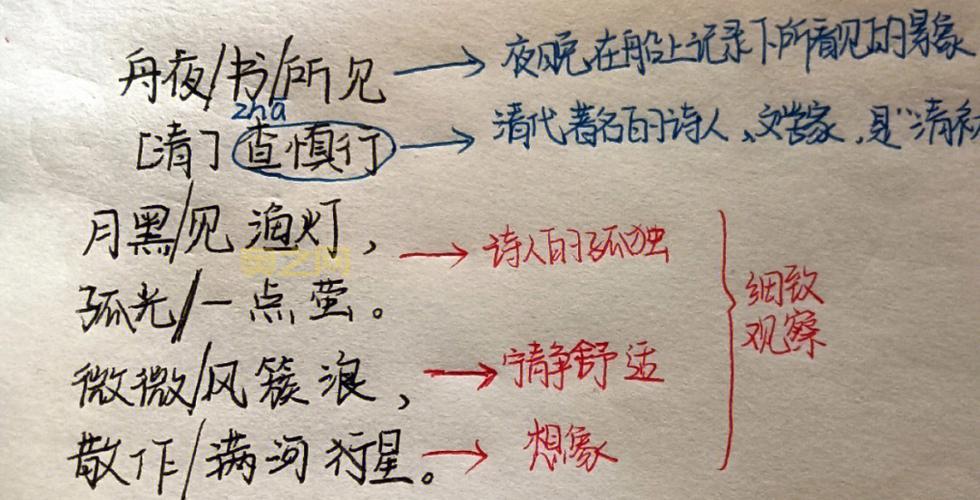 舟夜/书/所见 → 夜晚在船上记录下所看见的景象
zhā
[清] 查慎行 → 清代著名的诗人、文学家,是"清初
月黑/见渔灯,
→ 诗人的孤独
孤光/一点萤。
微微/风簇浪, → 宁静舒适
散作/满河行星。 → 想象
细致
观察